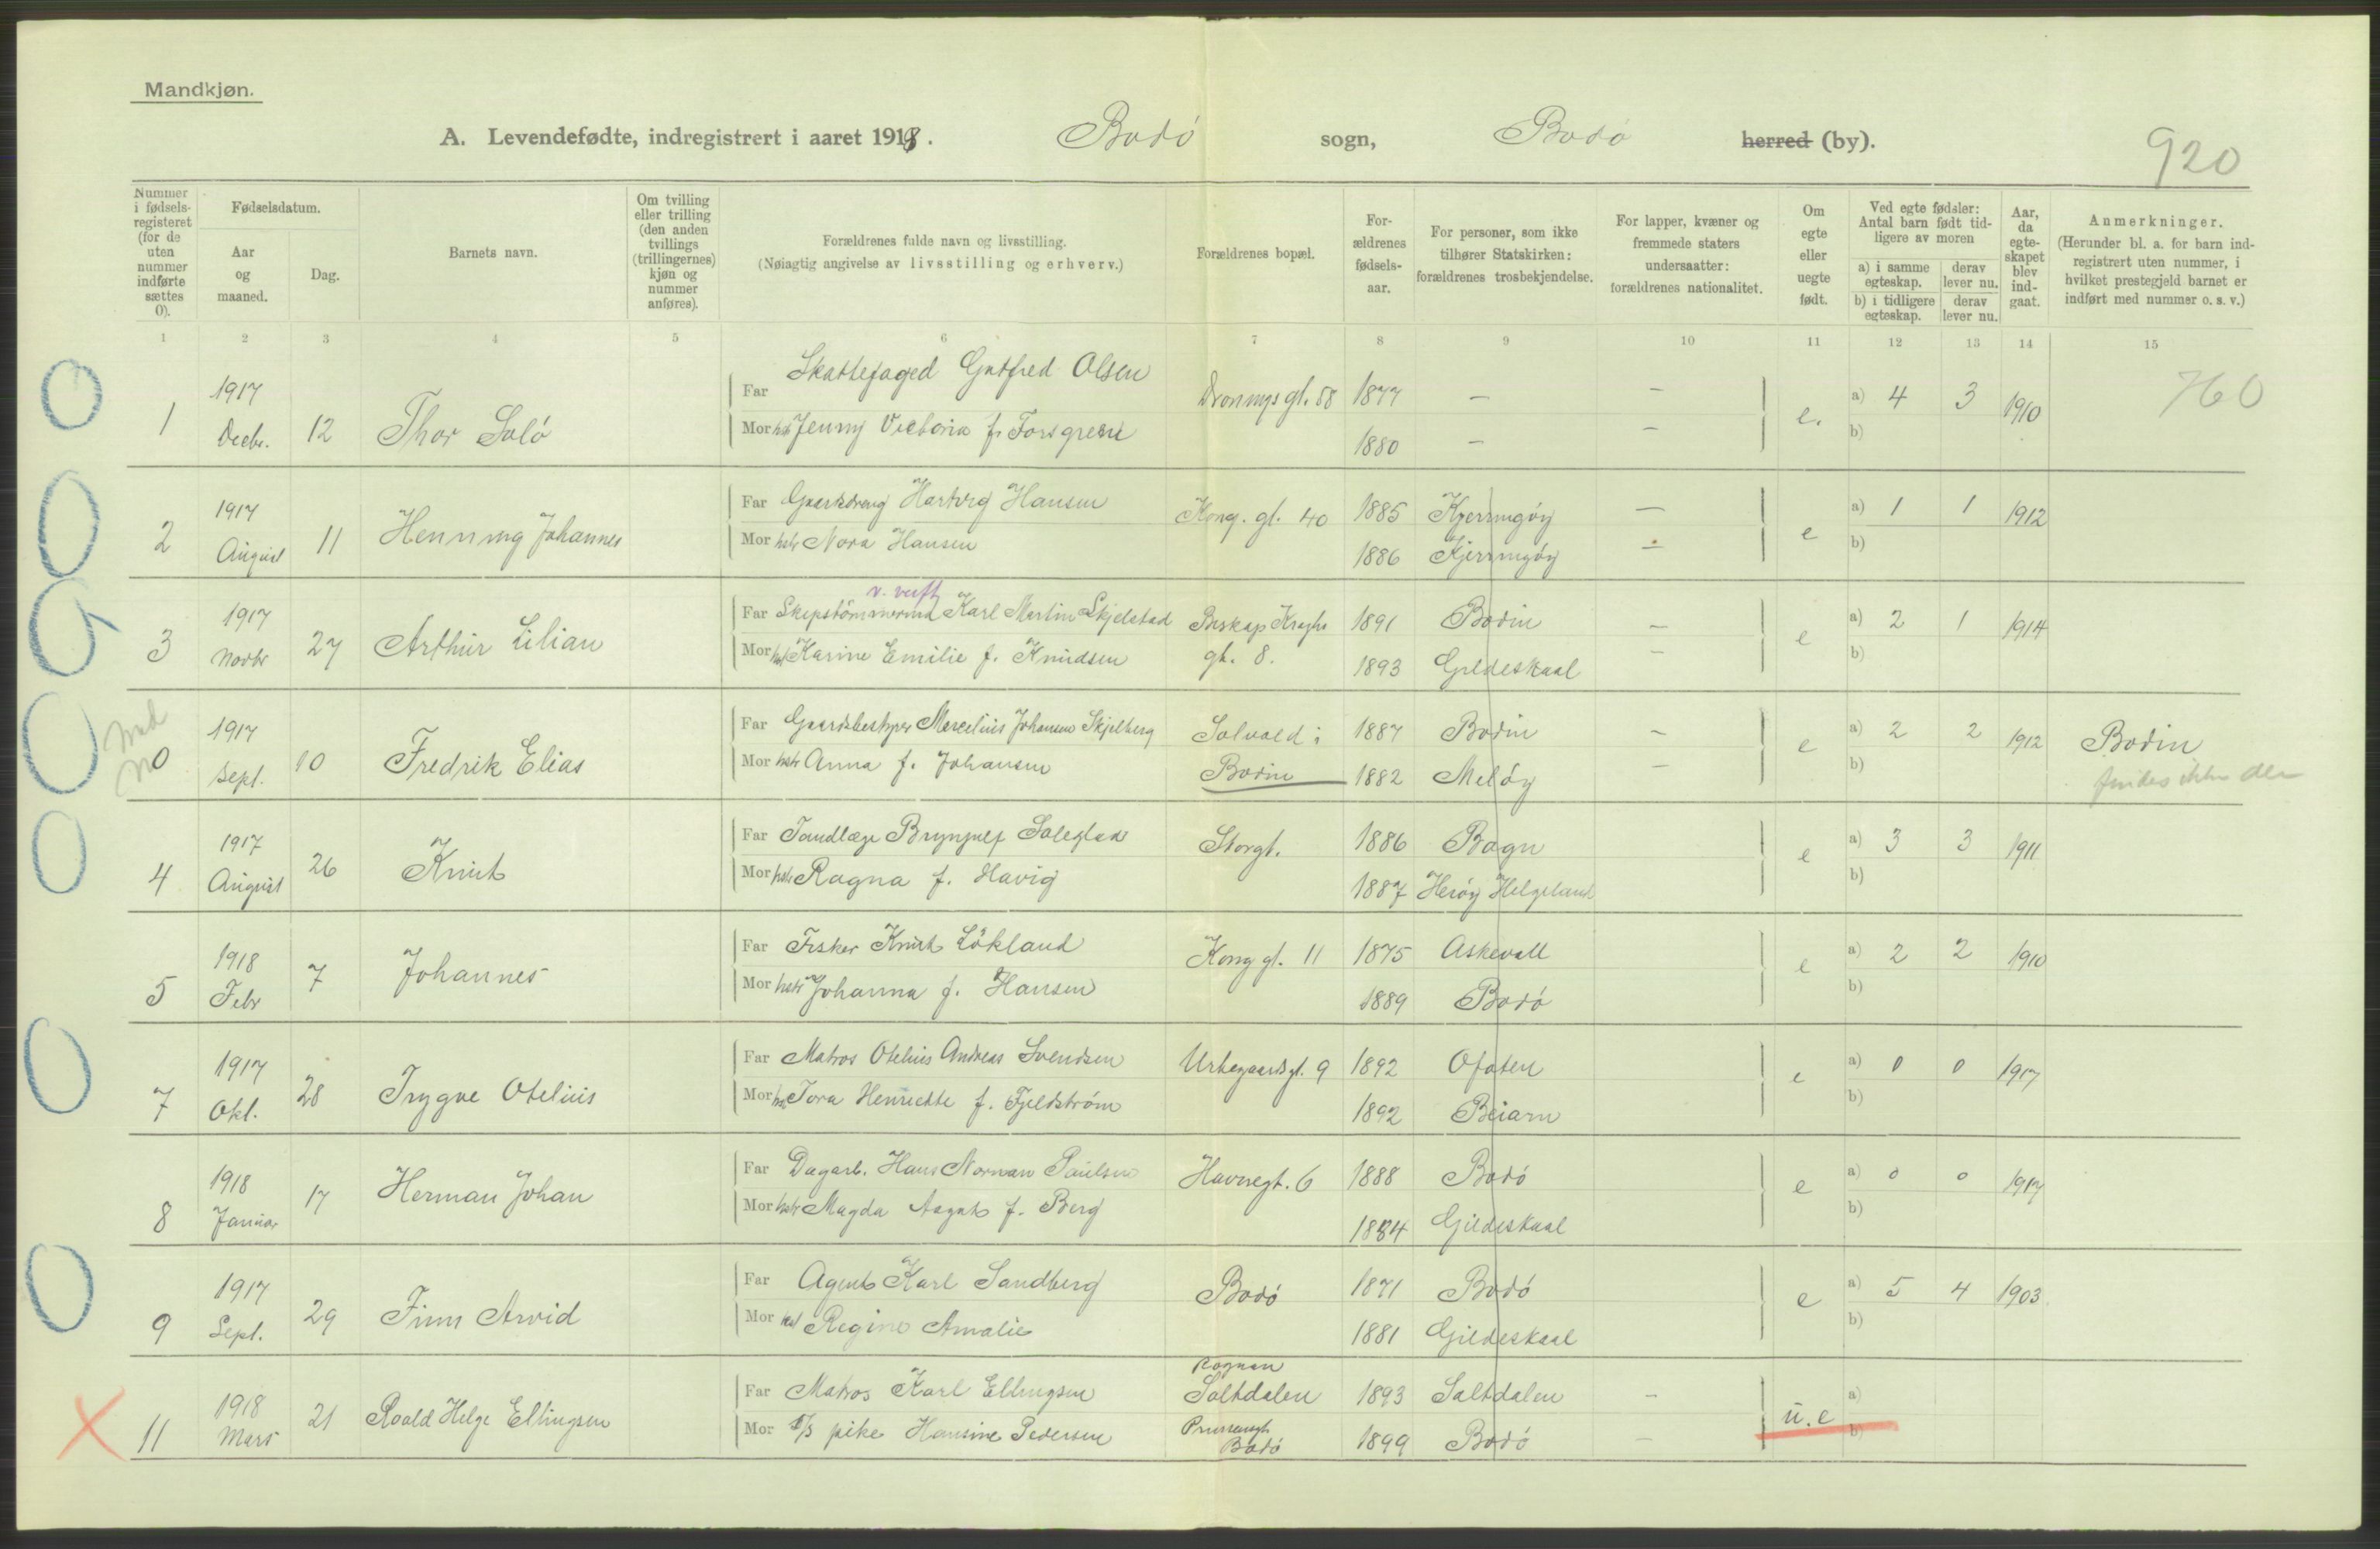 Mandkjøn.
A. Levendefødte, indregistrert i aaret 1918. Bodø sogn, Bodø herred (by).
920
Nummer i fødselsregisteret (for de uten nummer indførte sættes 0).
Fødselsdatum.
Aar og maaned.
Dag.
Barnets navn.
Om tvilling eller trilling (den anden tvillings (trillingernes) kjøn og nummer anføres).
Forældrenes fulde navn og livsstilling.
(Nøiagtig angivelse av livsstilling og erhverv.)
Forældrenes bopæl.
Forældrenes fødselsaar.
For personer, som ikke tilhører Statskirken: forældrenes trosbekjendelse.
For lapper, kvæner og fremmede staters undersaatter: forældrenes nationalitet.
Om egte eller uegte født.
Ved egte fødsler: Antal barn født tidligere av moren
a) i samme egteskap. derav lever nu.
b) i tidligere egteskap. derav lever nu.
Aar, da egteskapet blev indgaat.
Anmerkninger.
(Herunder bl. a. for barn indregistrert uten nummer, i hvilket prestegjeld barnet er indført med nummer o. s. v.)
1 2 3 4 5 6 7 8 9 10 11 12 13 14 15
1 1917 Decbr. 12 Thor Solø
Far Skattefoged Gotfred Olsen Dronnings gt. 58 1877 — — e. a) 4 3 1910 760
Mor hstr Jenny Victoria f. Forsgren 1880 — — b)
2 1917 August 11 Henning Johannes
Far Gaardsdreng Hartvig Hansen Kong. gt. 40 1885 Kjerringøy — e a) 1 1 1912
Mor hstr Nora Hansen 1886 Kjerringøy — b)
v. verft
3 1917 Novbr 27 Arthur Lilian
Far Skipstømmermd Karl Martin Skjelstad Biskop Kroghs 1891 Bodin — e a) 2 1 1914
Mor hstr Karine Emilie f. Knudsen gt. 8. 1893 Gildeskaal — b)
0 1917 Sept. 10 Fredrik Elias
Far Gaardsbestyrer Marcelius Johansen Skjelberg Solvold i 1887 Bodin — e a) 2 2 1912 Bodin
Mor hstr Anna f. Johansen Bodin 1882 Meløy — b) findes ikke der
4 1917 August 26 Knut
Far Tandlæge Brynjulf Soleglad Storgt. 1886 Bagn e a) 3 3 1911
Mor hstr Ragna f. Havig 1887 Herøy Helgeland b)
5 1918 Febr 7 Johannes
Far Fisker Knut Løkland Kong gt. 11 1875 Askevoll e a) 2 2 1910
Mor hstr Johanna f. Hansen 1889 Bodø b)
7 1917 Okt. 28 Trygve Otelius
Far Matros Otelius Andreas Svendsen Urtegaardsgt. 9 1892 Ofoten e a) 0 0 1917
Mor hstr Tora Henriette f. Fjeldstrøm 1892 Beiarn b)
8 1918 Januar 17 Herman Johan
Far Dagarb. Hans Norman Paulsen Havnegt. 6 1888 Bodø e a) 0 0 1917
Mor hstr Magda Aagot f. Berg 1884 Gildeskaal b)
9 1917 Sept. 29 Finn Arvid
Far Agent Karl Sandberg Bodø 1871 Bodø e a) 5 4 1903
Mor Regine Amalie 1881 Gildeskaal b)
Rognan
11 1918 Mars 21 Roald Helge Ellingsen
Far Matros Karl Ellingsen Saltdalen 1893 Saltdalen — u.e a)
Mor pike Hansine Pedersen Bodø 1899 Bodø — b)